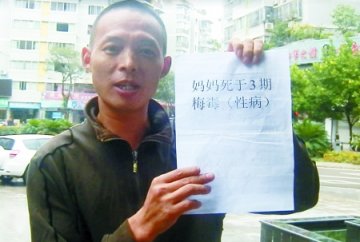 妈妈死于3期
梅毒（性病）